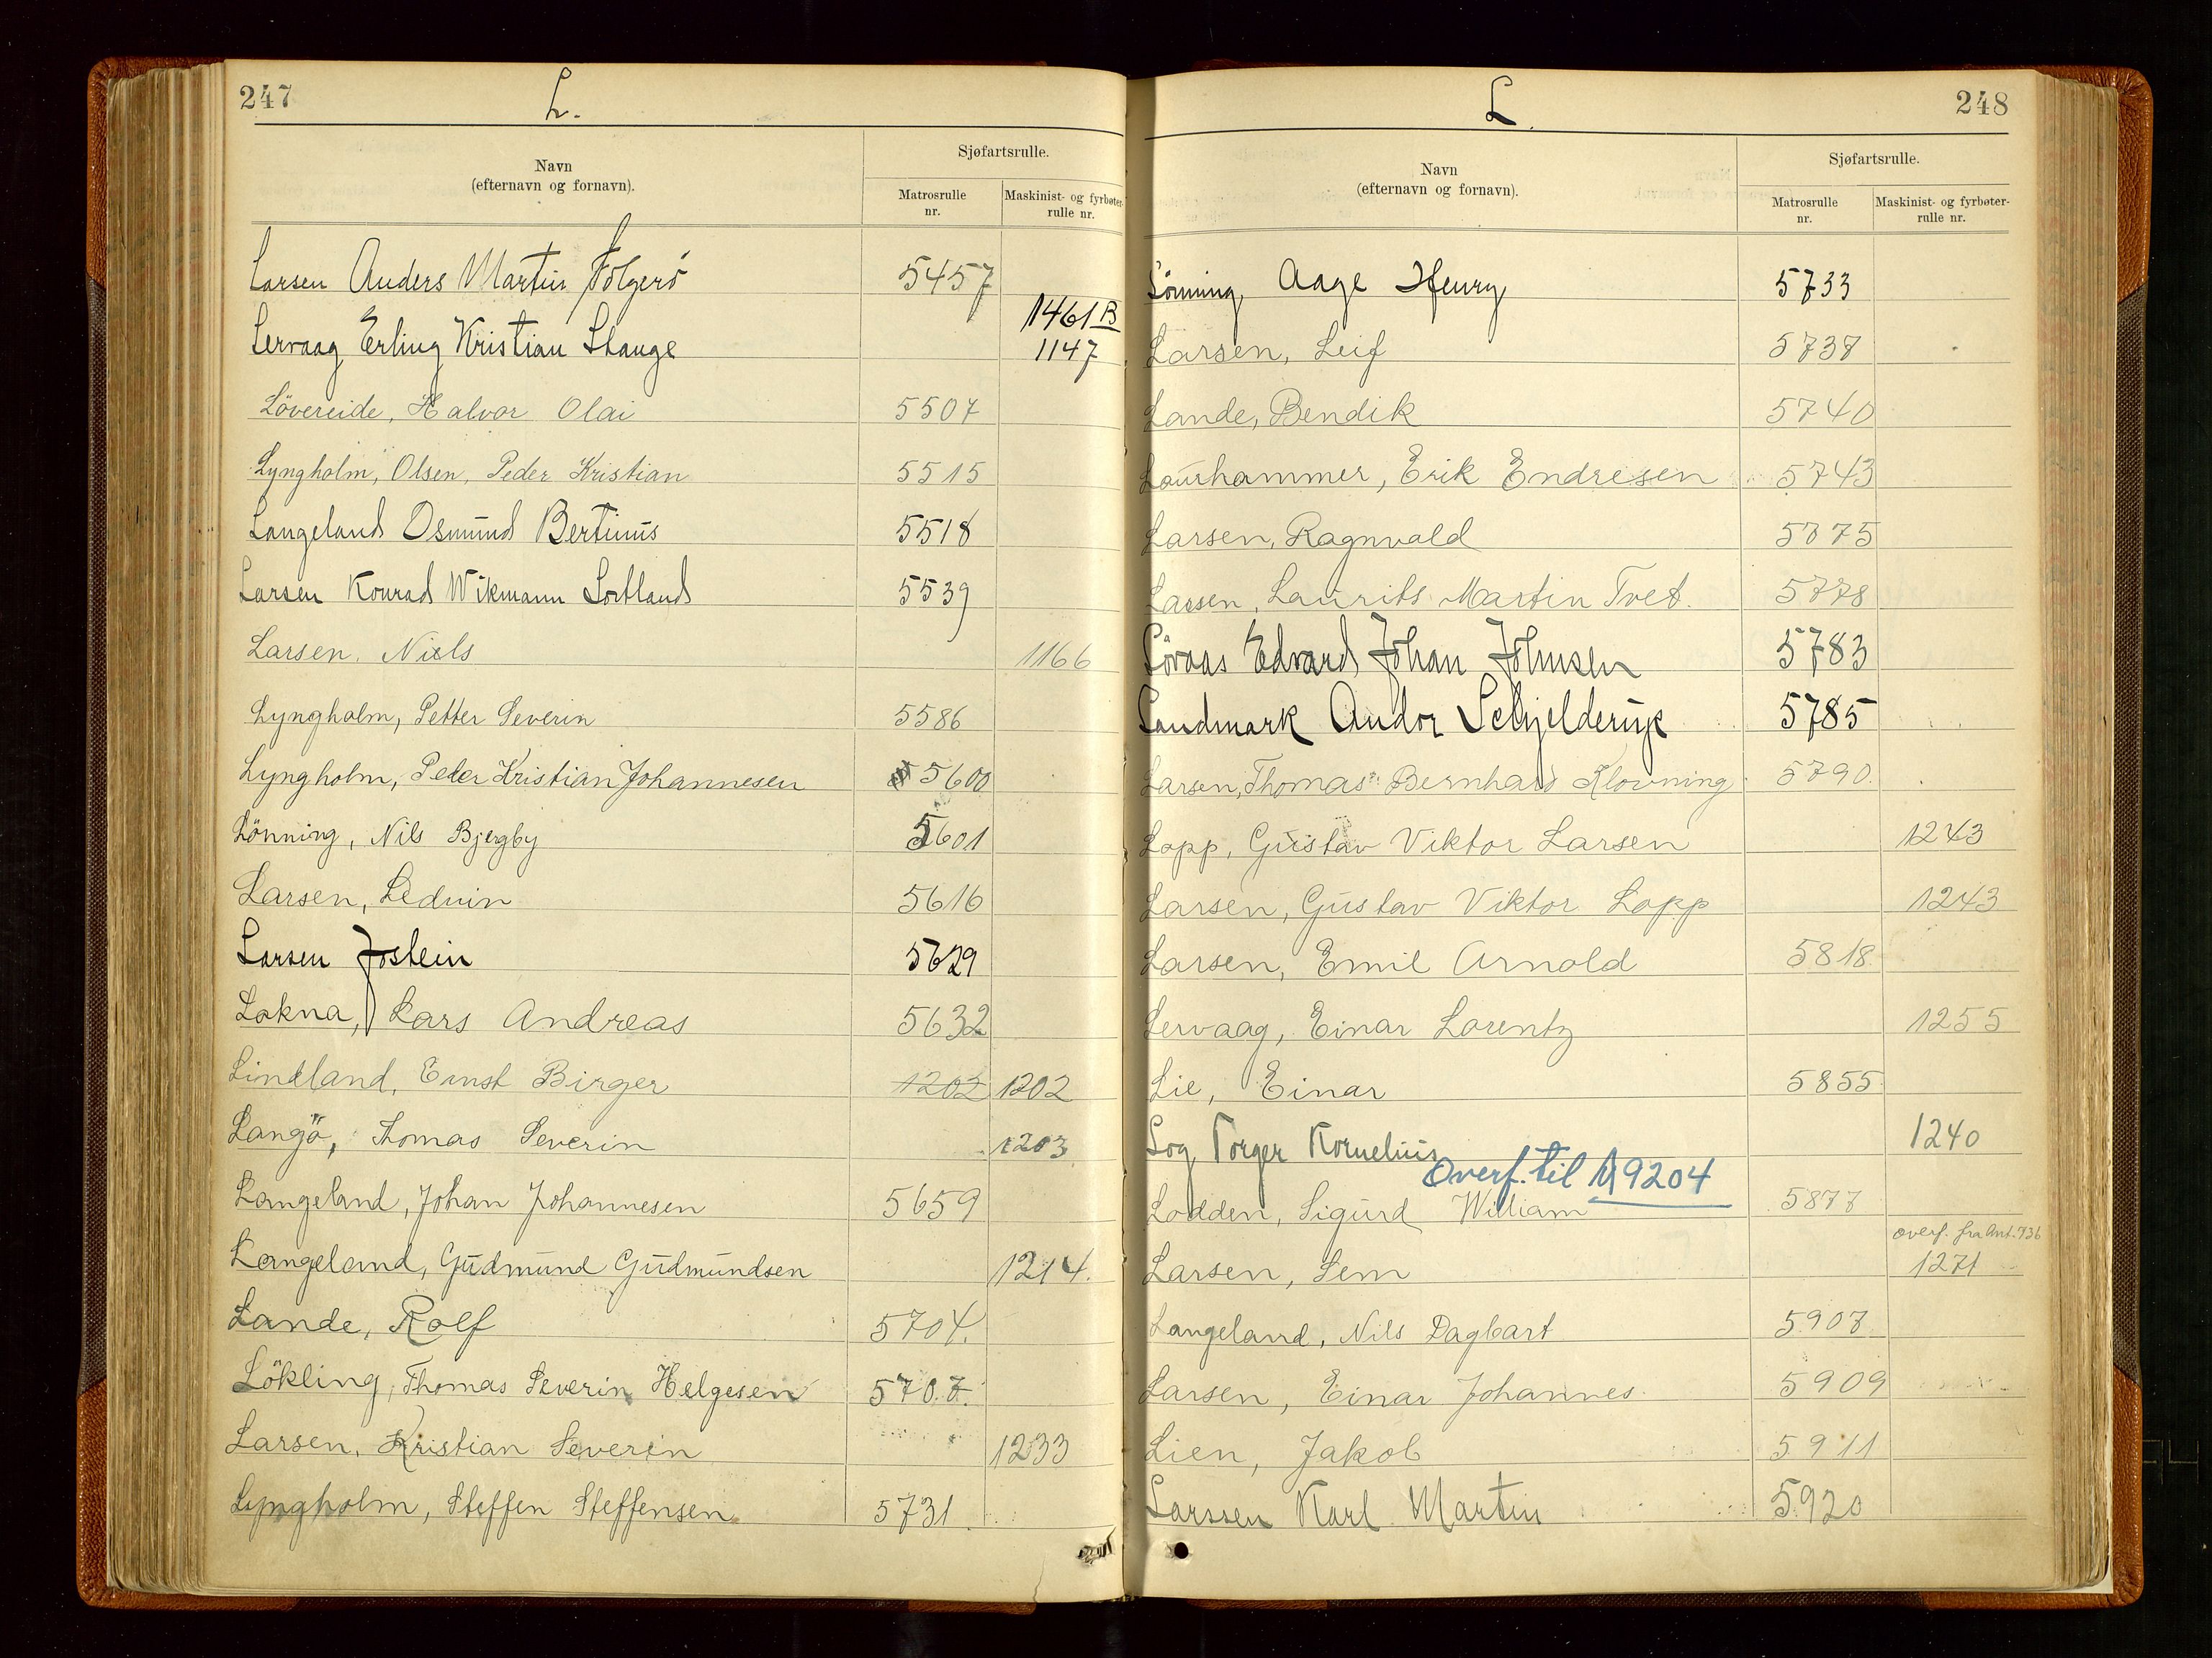 247
L.
Navn
(efternavn og fornavn).
Sjøfartsrulle.
Matrosrulle
nr.
Maskinist- og fyrbøter-
rulle nr.
Larsen Anders Martin Følgerö 5457
1461 B
Lervaag Erling Kristian Stange 1147
Lövereide, Halvor Olai 5507
Lyngholm, Olsen, Peder Kristian 5515
Langeland Osmund Bertinus 5518
Larsen Konrad Wikmann Sortland 5539
Larsen, Niels 1166
Lyngholm, Petter Severin 5586
Lyngholm, Peder Kristian Johannesen 5600
Lönning, Nils Bjergby 5601
Larsen, Leduin 5616
Larsen Jostein 5629
Lokna, Lars Andreas 5632
Lindland, Ernst Birger 1202 1202
Langö, Thomas Severin 1203
Langeland, Johan Johannesen 5659
Langeland, Gudmund Gudmundsen 1214.
Lande, Rolf 5704.
Lökling, Thomas Severin Helgesen 5707.
Larsen, Kristian Severin 1233
Lyngholm, Steffen Steffensen 5731
248
L.
Navn
(efternavn og fornavn).
Sjøfartsrulle.
Matrosrulle
nr.
Maskinist- og fyrbøter-
rulle nr.
Lönning, Aage Henry 5733
Larsen, Leif 5737
Lande, Bendik 5740
Laurhammer, Erik Endresen 5743
Larsen, Ragnvald 5775
Larsen, Laurits Martin Tvet. 5778
Lövaas Edvard Johan Johnsen 5783
Landmark Andor Schjelderup 5785
Larsen, Thomas Bernhard Klovning 5790.
Lopp, Gustav Viktor Larsen 1243
Larsen, Gustav Viktor Lopp 1243
Larsen, Emil Arnold 5818
Lervaag, Einar Lorentz 1255
Lie, Einar 5855
Log Torger Kornelius 1240
Overf. til A 9204
Lodden, Sigurd William 5877
overf. fra Ant. 736
Larsen, Sem 1271
Langeland, Nils Dagbart 5907
Larsen, Einar Johannes 5909
Lien, Jakob 5911
Larssen Karl Martin 5920